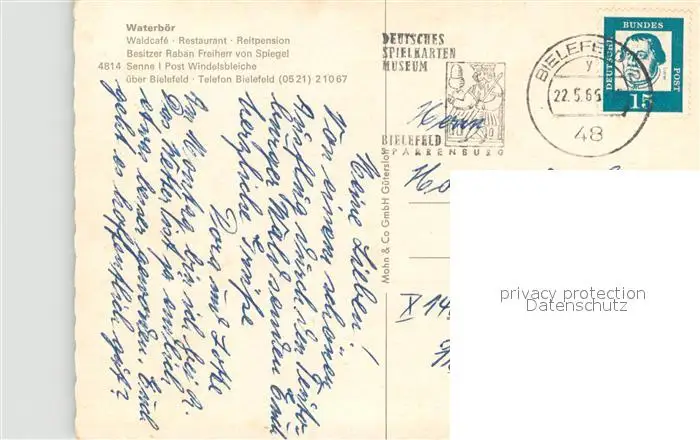 Waterbör
Waldcafé · Restaurant · Reitpension
Besitzer Raban Freiherr von Spiegel
4814 Senne I Post Windelsbleiche
über Bielefeld · Telefon Bielefeld (0521) 21067
DEUTSCHES
SPIELKARTEN
MUSEUM
BIELEFELD
SPARRENBURG
BIELEFELD
22.5.65
48
DEUTSCHE
BUNDES
POST
15
Mohn & Co GmbH Gütersloh
Herrn
X 14
Meine Lieben!
Von einem schönen
Ausflug durch den Teuto-
burger Wald senden Euch
herzliche Grüße
Dora und
Am Montag bin ich bei
etwas besser geworden. Euch
geht es hoffentlich gut?
privacy protection
Datenschutz